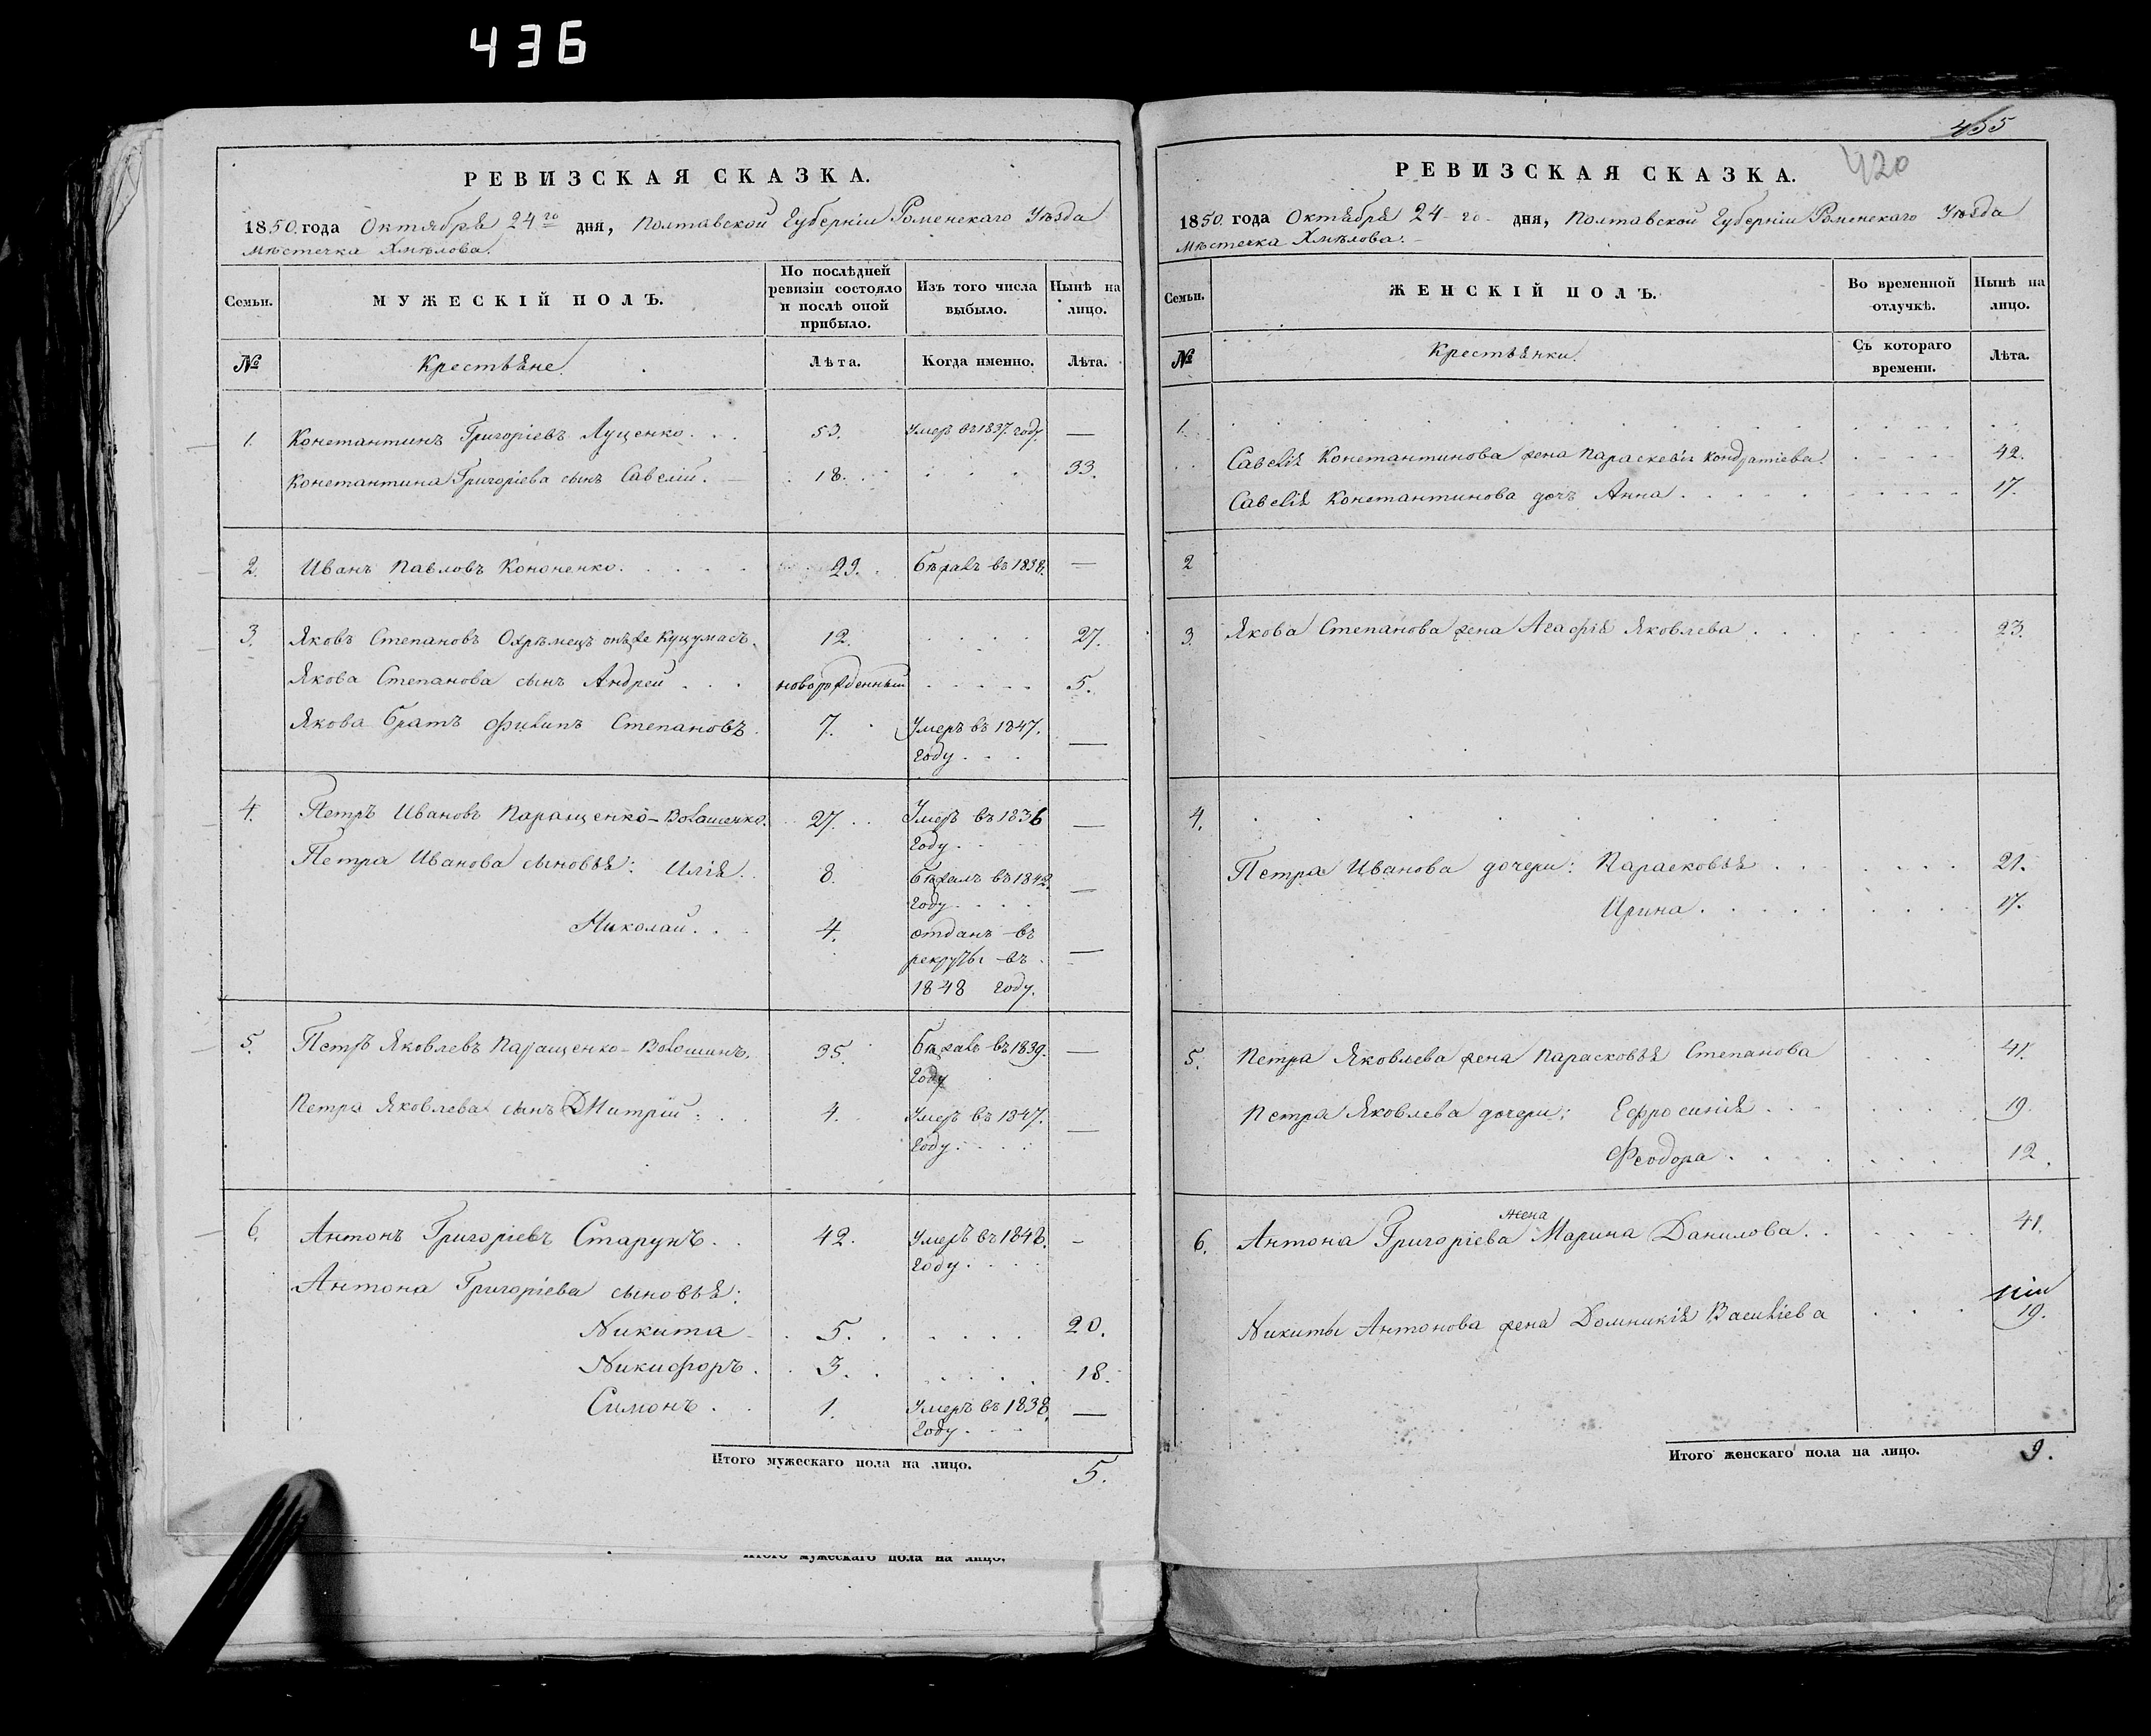 436
РЕВИЗСКАЯ СКАЗКА.
1850. года Октября 24го дня, Полтавской Губерніи Роменскаго Уѣзда
Мѣстечка Хмѣлова.
Семьи.
МУЖЕСКІЙ ПОЛЪ.
По послѣдней ревизіи состояло и послѣ оной прибыло.
Изъ того числа выбыло.
Нынѣ на лицо.
№
Крестьяне.
Лѣта.
Когда именно.
Лѣта.
1. Константинъ Григоріевъ Луценко. . . 53. Умеръ въ 1837. году. —
Константина Григоріева сынъ Савелій. — 18. . . . . 33.
2. Иванъ Павловъ Кононенко. . . . . 29. Бѣжалъ въ 1838. —
3. Яковъ Степановъ Охрѣмецъ онъ же Куцумасъ. 12. . . . . 27.
Якова Степанова сынъ Андрей . . . новорожденный . . . . . 5.
Якова братъ Филипъ Степановъ. 7. Умеръ въ 1847.
году. . . . —
4. Петръ Ивановъ Паращенко-Волошенко. 27. Умеръ въ 1836 —
году. . . .
Петра Иванова сыновья: Илія. . 8. бѣжалъ въ 1842. —
году. . . .
Николай. . . 4. отданъ въ
рекруты въ —
1848 году.
5. Петръ Яковлевъ Паращенко-Волошинъ. 35. Бѣжалъ въ 1839. —
году
Петра Яковлева сынъ Дмитрій: . 4. Умеръ въ 1847. —
году. . . .
6. Антонъ Григоріевъ Старунъ. . 42. Умеръ въ 1848. —
году. . . .
Антона Григоріева сыновья:
Никита . 5. . . . . 20.
Никифоръ. . 3. . . . . 18.
Симонъ . . 1. Умеръ въ 1838. —
году. . . .
Итого мужескаго пола на лицо. 5.
Итого мужескаго пола на лицо.
455
420
РЕВИЗСКАЯ СКАЗКА.
1850. года Октября 24-го- дня, Полтавской Губерніи Роменскаго Уѣзда
Мѣстечка Хмѣлова. —
Семьи.
ЖЕНСКІЙ ПОЛЪ.
Во временной отлучкѣ.
Нынѣ на лицо.
№
Крестьянки.
Съ котораго времени.
Лѣта.
1.
Савелія Константинова жена Параскевія Кондратіева. 42.
Савелія Константинова дочь Анна . . . . 17.
2
3. Якова Степанова жена Агафія Яковлева . . . 23.
4.
Петра Иванова дочери: Парасковья . . . 21.
Ирина. . . . . 17.
5. Петра Яковлева жена Парасковья Степанова . . . 41.
Петра Яковлева дочери: Ефросинія . . . 19.
Феодора . . . . 12.
жена
6. Антона Григоріева Марина Данилова. . . 41.
Никиты Антонова жена Домникія Василіева . . . 19.
Итого женскаго пола на лицо. 9.